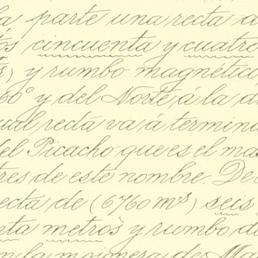 la parte una recta a
tos cincuenta y cuatro
s) y rumbo magnético
60° y del Norte á la d
ual recta va á termina
del Picacho que es el ma
tres de este nombre. De
recta de (6760 mˢ) seis
nta metros y rumbo d